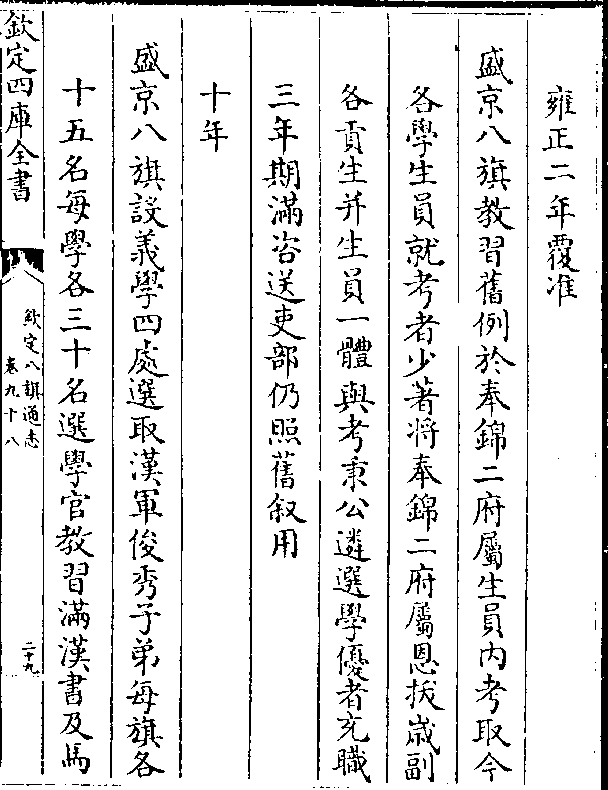 雍正二年覆准
盛京八旗教習舊例於奉錦二府屬生員内考取今
各學生員就考者少著将奉錦二府屬恩拔歳副
各貢生并生員一體與考秉公遴選學優者充職
三年期滿咨送吏部仍照舊叙用
十年
盛京八旗設義學四處選取漢軍俊秀子弟每旗各
十五名每學各三十名選學官教習滿漢書及馬
欽定四庫全書
欽定八旗通志
卷九十八
二十九